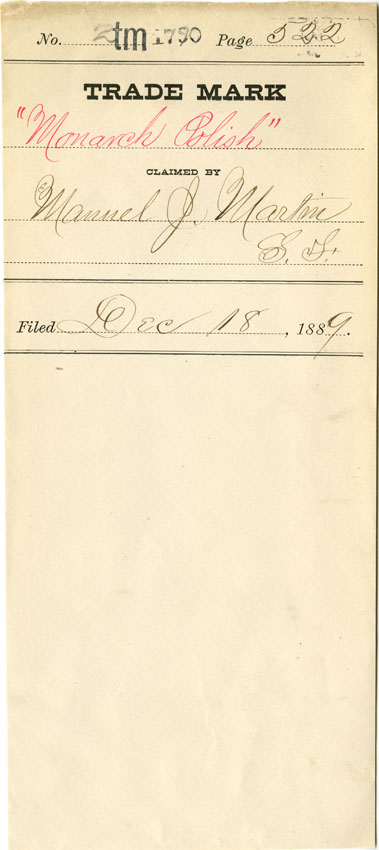 No. 2tm 1790 Page 522
TRADE MARK
"Monarch Polish"
CLAIMED BY
Manuel J. Martin
S. F.
Filed Dec 18, 1889.